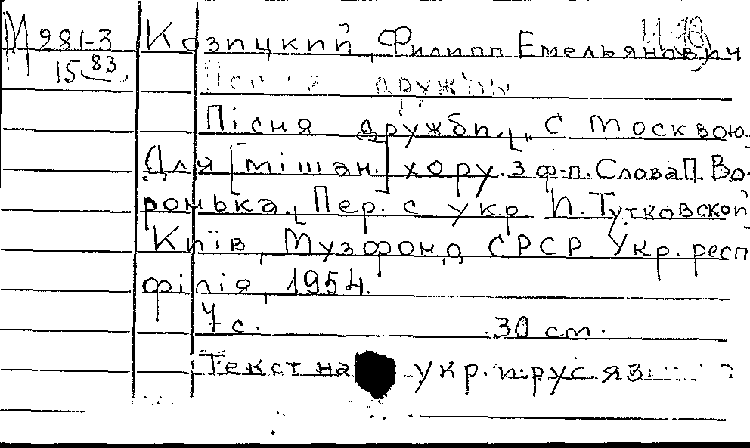 М 281-3 Козицкий, Филипп Емельянович
15 83
дружби
Пісня дружби. „С Москвою
Для [мішан.] хору. З ф-п. Слова П. Во-
ронька. Пер. с укр. П. Тутковской
Київ, Музфонд СРСР. Укр. респ
філія, 1954.
7 с. 30 cm.
Текст на укр. и рус яз